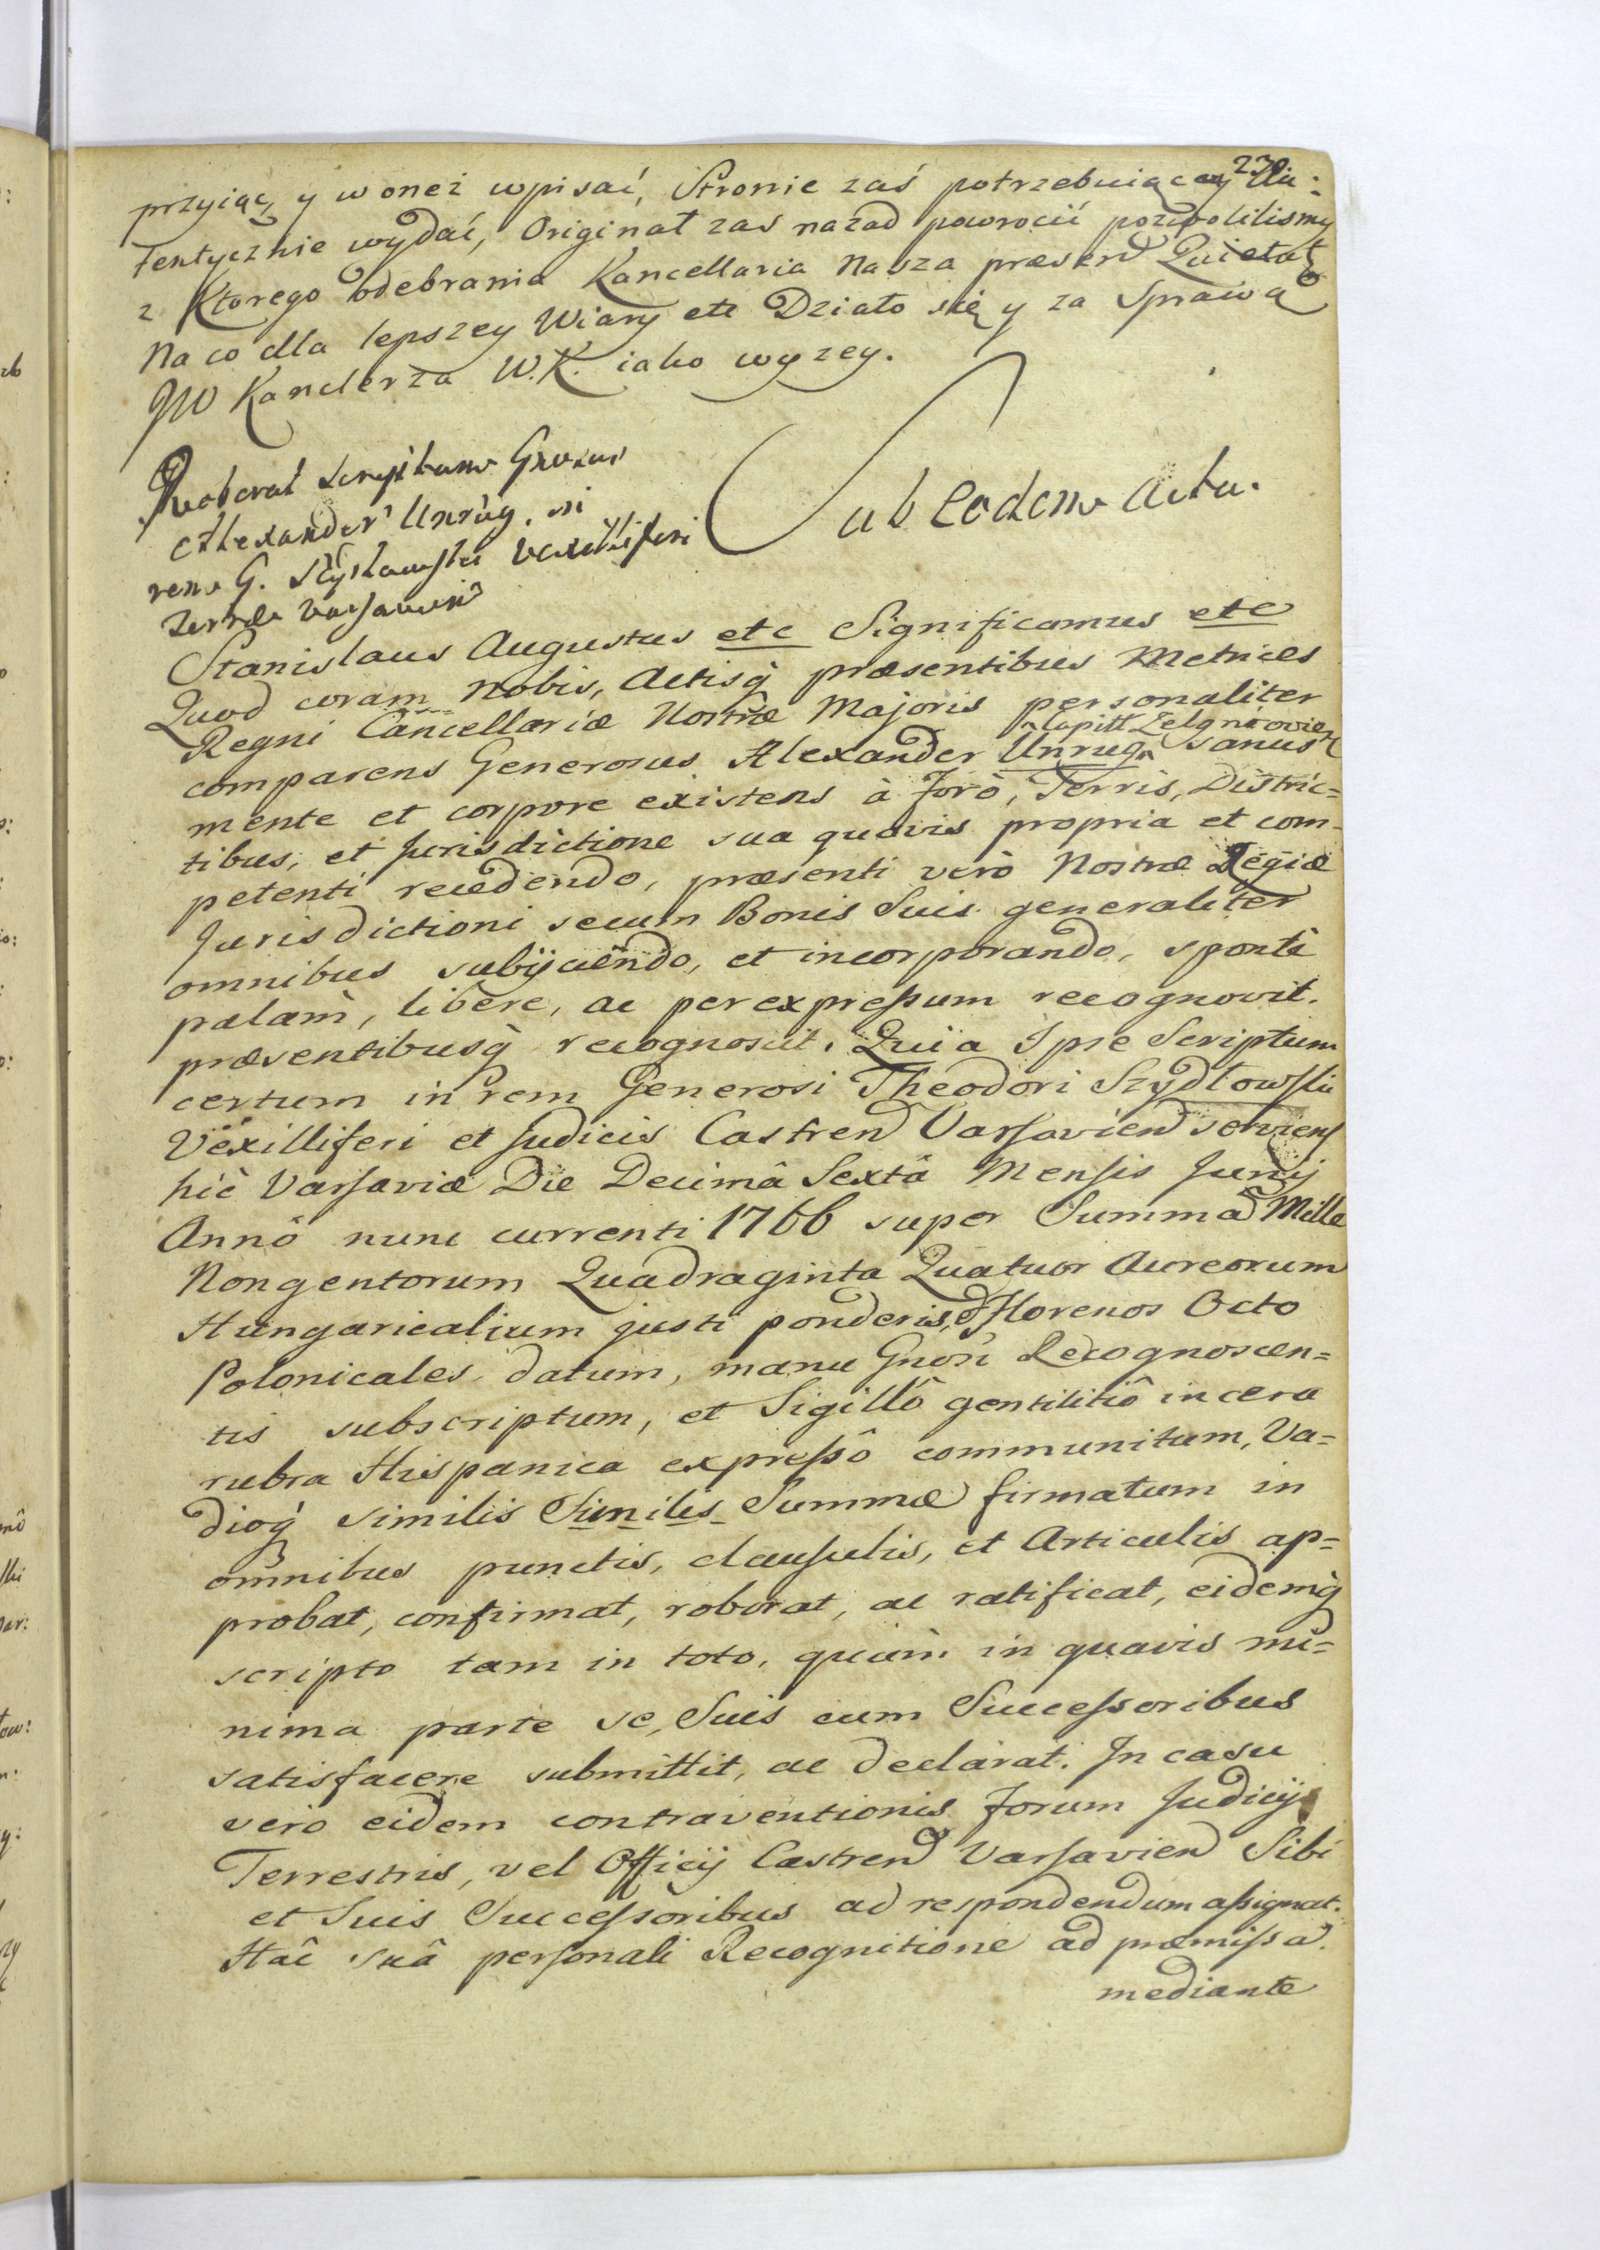 230
przyiącz y w oneź wpisać, Stronie zaś potrzebuiącey Au:
tentycznie wydać, Originał zas nazad powrocić pozwolilismy
z Ktorego odebrania Kancellaria Nasza præsend Quietat
Na co dla lepszey Wiary etc Działo się y za Sprawą
JW Kanclerza W.K. iako wyzey.
Roborat Scriptum Grosus
Alexander Unrug, in
rem G. Szydłowski Vexilliferi
Terræ Varsavien
Sub Eodem Actu.
Stanislaus Augustus etc Significamus etc
Quod coram Nobis, Actisq́ præsentibus Metrices
Regni Cancellariæ Nostræ Majoris personaliter
comparens Generosus Alexander Unrug Capitt Zelgniovien sanus
mente et corpore existens à Forô, Terris, Distric=
tibus, et Jurisdictione sua quavis propria et com=
petenti recedendo, præsenti verò Nostræ Regiæ
Jurisdictioni secum Bonis Suis generaliter
omnibus subijciendo, et incorporando, spontè
palàm, liberè, ac per expressum recognovit.
præsentibusq́ recognoscit. Quia Ipse Scriptum
certum in rem Generosi Theodori Szydłowski
Vexilliferi et Judicis Castren Varsavien serviens
hic Varsaviæ Die Decimâ Sextâ Mensis Junij
Annô nunc currenti 1766 super Summâ Mille
Nongentorum Quadraginta Quatuor Aureorum
Hungaricalium justi ponderis, et Florenos Octo
Polonicales datum, manu Gnosi Recognoscen=
tis subscriptum, et Sigillô gentilitiô in cera
rubra Hispanica expressô communitum, Va=
dioq́ similis Similis Summæ firmatum in
omnibus punctis, clausulis, et Articulis ap=
probat, confirmat, roborat, ac ratificat, eidemq́
scripto tam in toto, quàm in quavis mi=
nima parte se, Suis cum Successoribus
satisfacere submittit, ac declarat. In casu
verò eidem contraventionis forum Judicij
Terrestris, vel Officij Castren Varsavien Sibi
et Suis Successoribus ad respondendum assignat.
Hac suâ personali Recognitione ad præmissa.
mediante